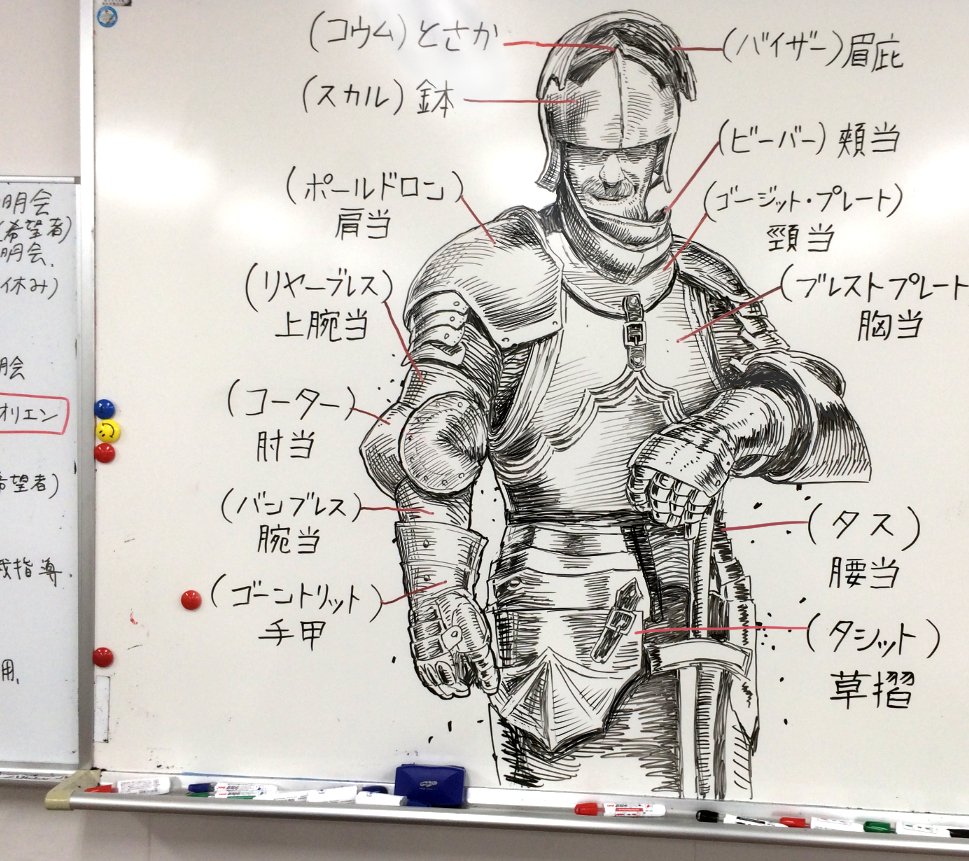 明会
(希望者)
明会.
休み)
明会
オリエン
希望者)
指導.
用.
(コウム) とさか
(バイザー) 眉庇
(スカル) 鉢
(ビーバー) 頬当
(ポールドロン)
肩当
(ゴージット・プレート)
頸当
(リヤーブレス)
上腕当
(ブレストプレート
胸当
(コーター)
肘当
(バンブレス)
腕当
(タス)
腰当
(ゴーントリット)
手甲
(タシット)
草摺